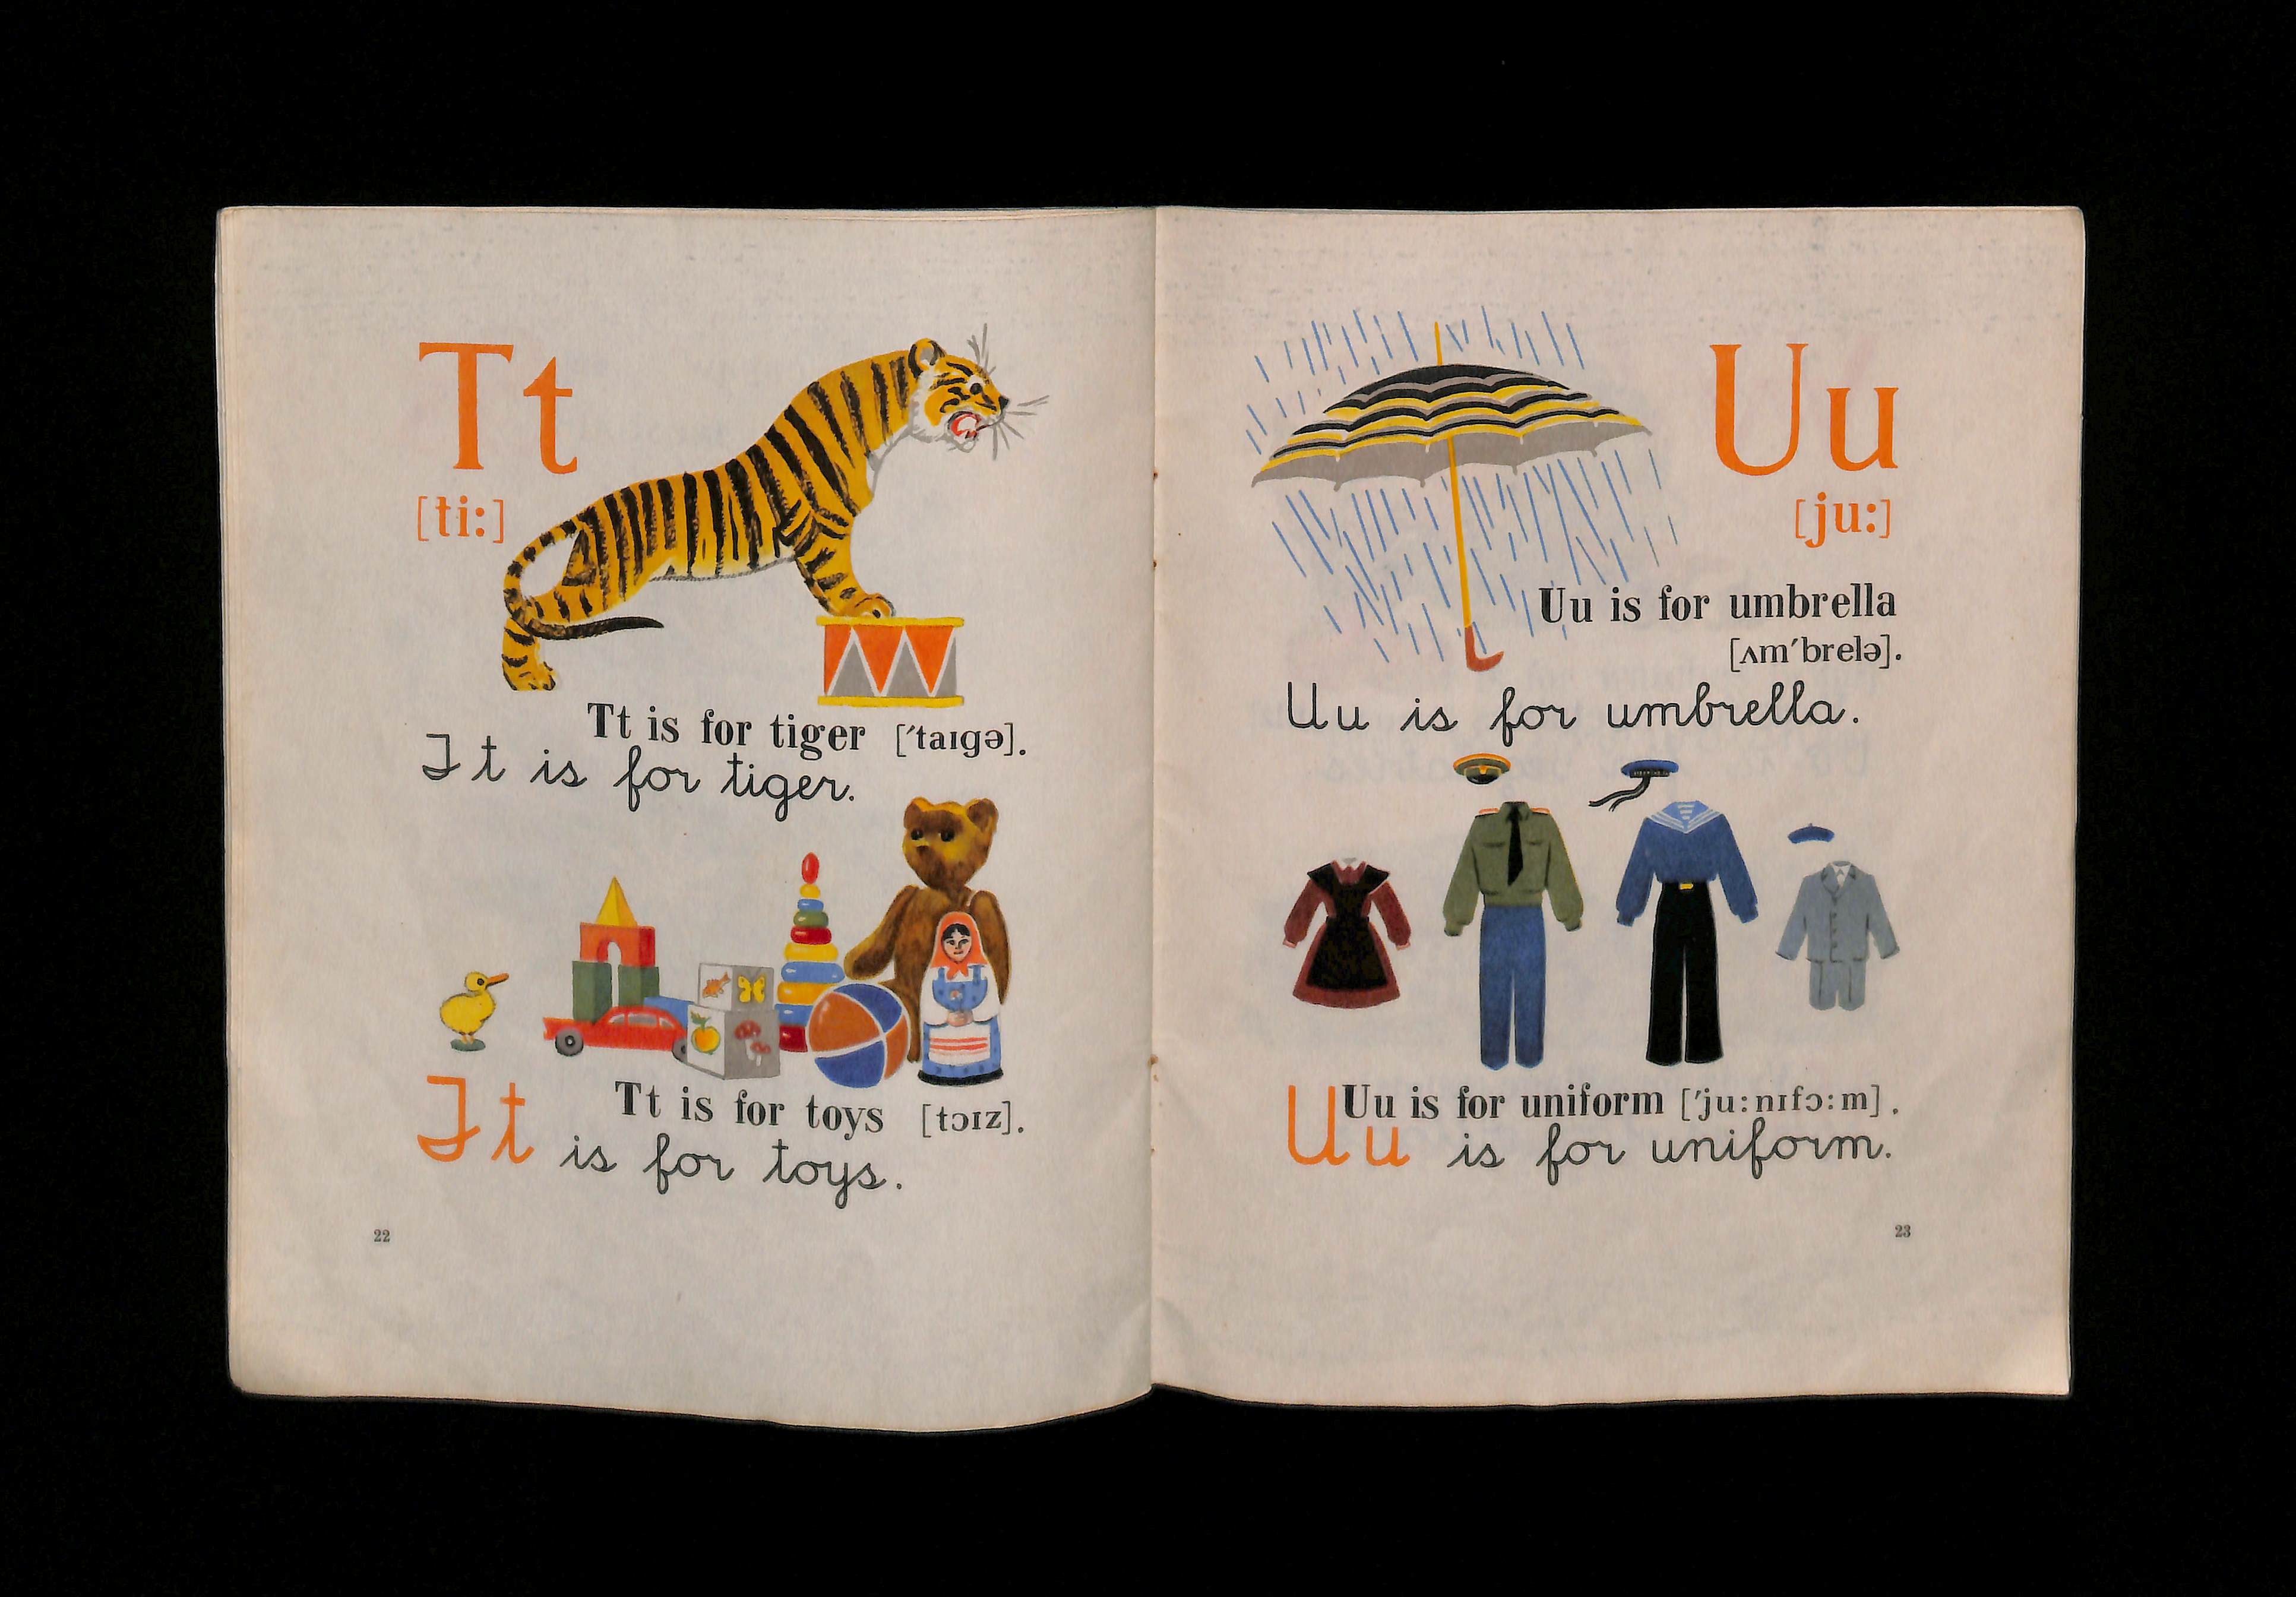 Tt
[ti:]
Tt is for tiger [ˈtaıgə].
Tt is for tiger.
Tt is for toys [tɔız].
Tt is for toys.
22
Uu
[ju:]
Uu is for umbrella
[ʌmˈbrelə].
Uu is for umbrella.
Uu is for uniform [ˈju:nıfɔ:m].
Uu is for uniform.
23